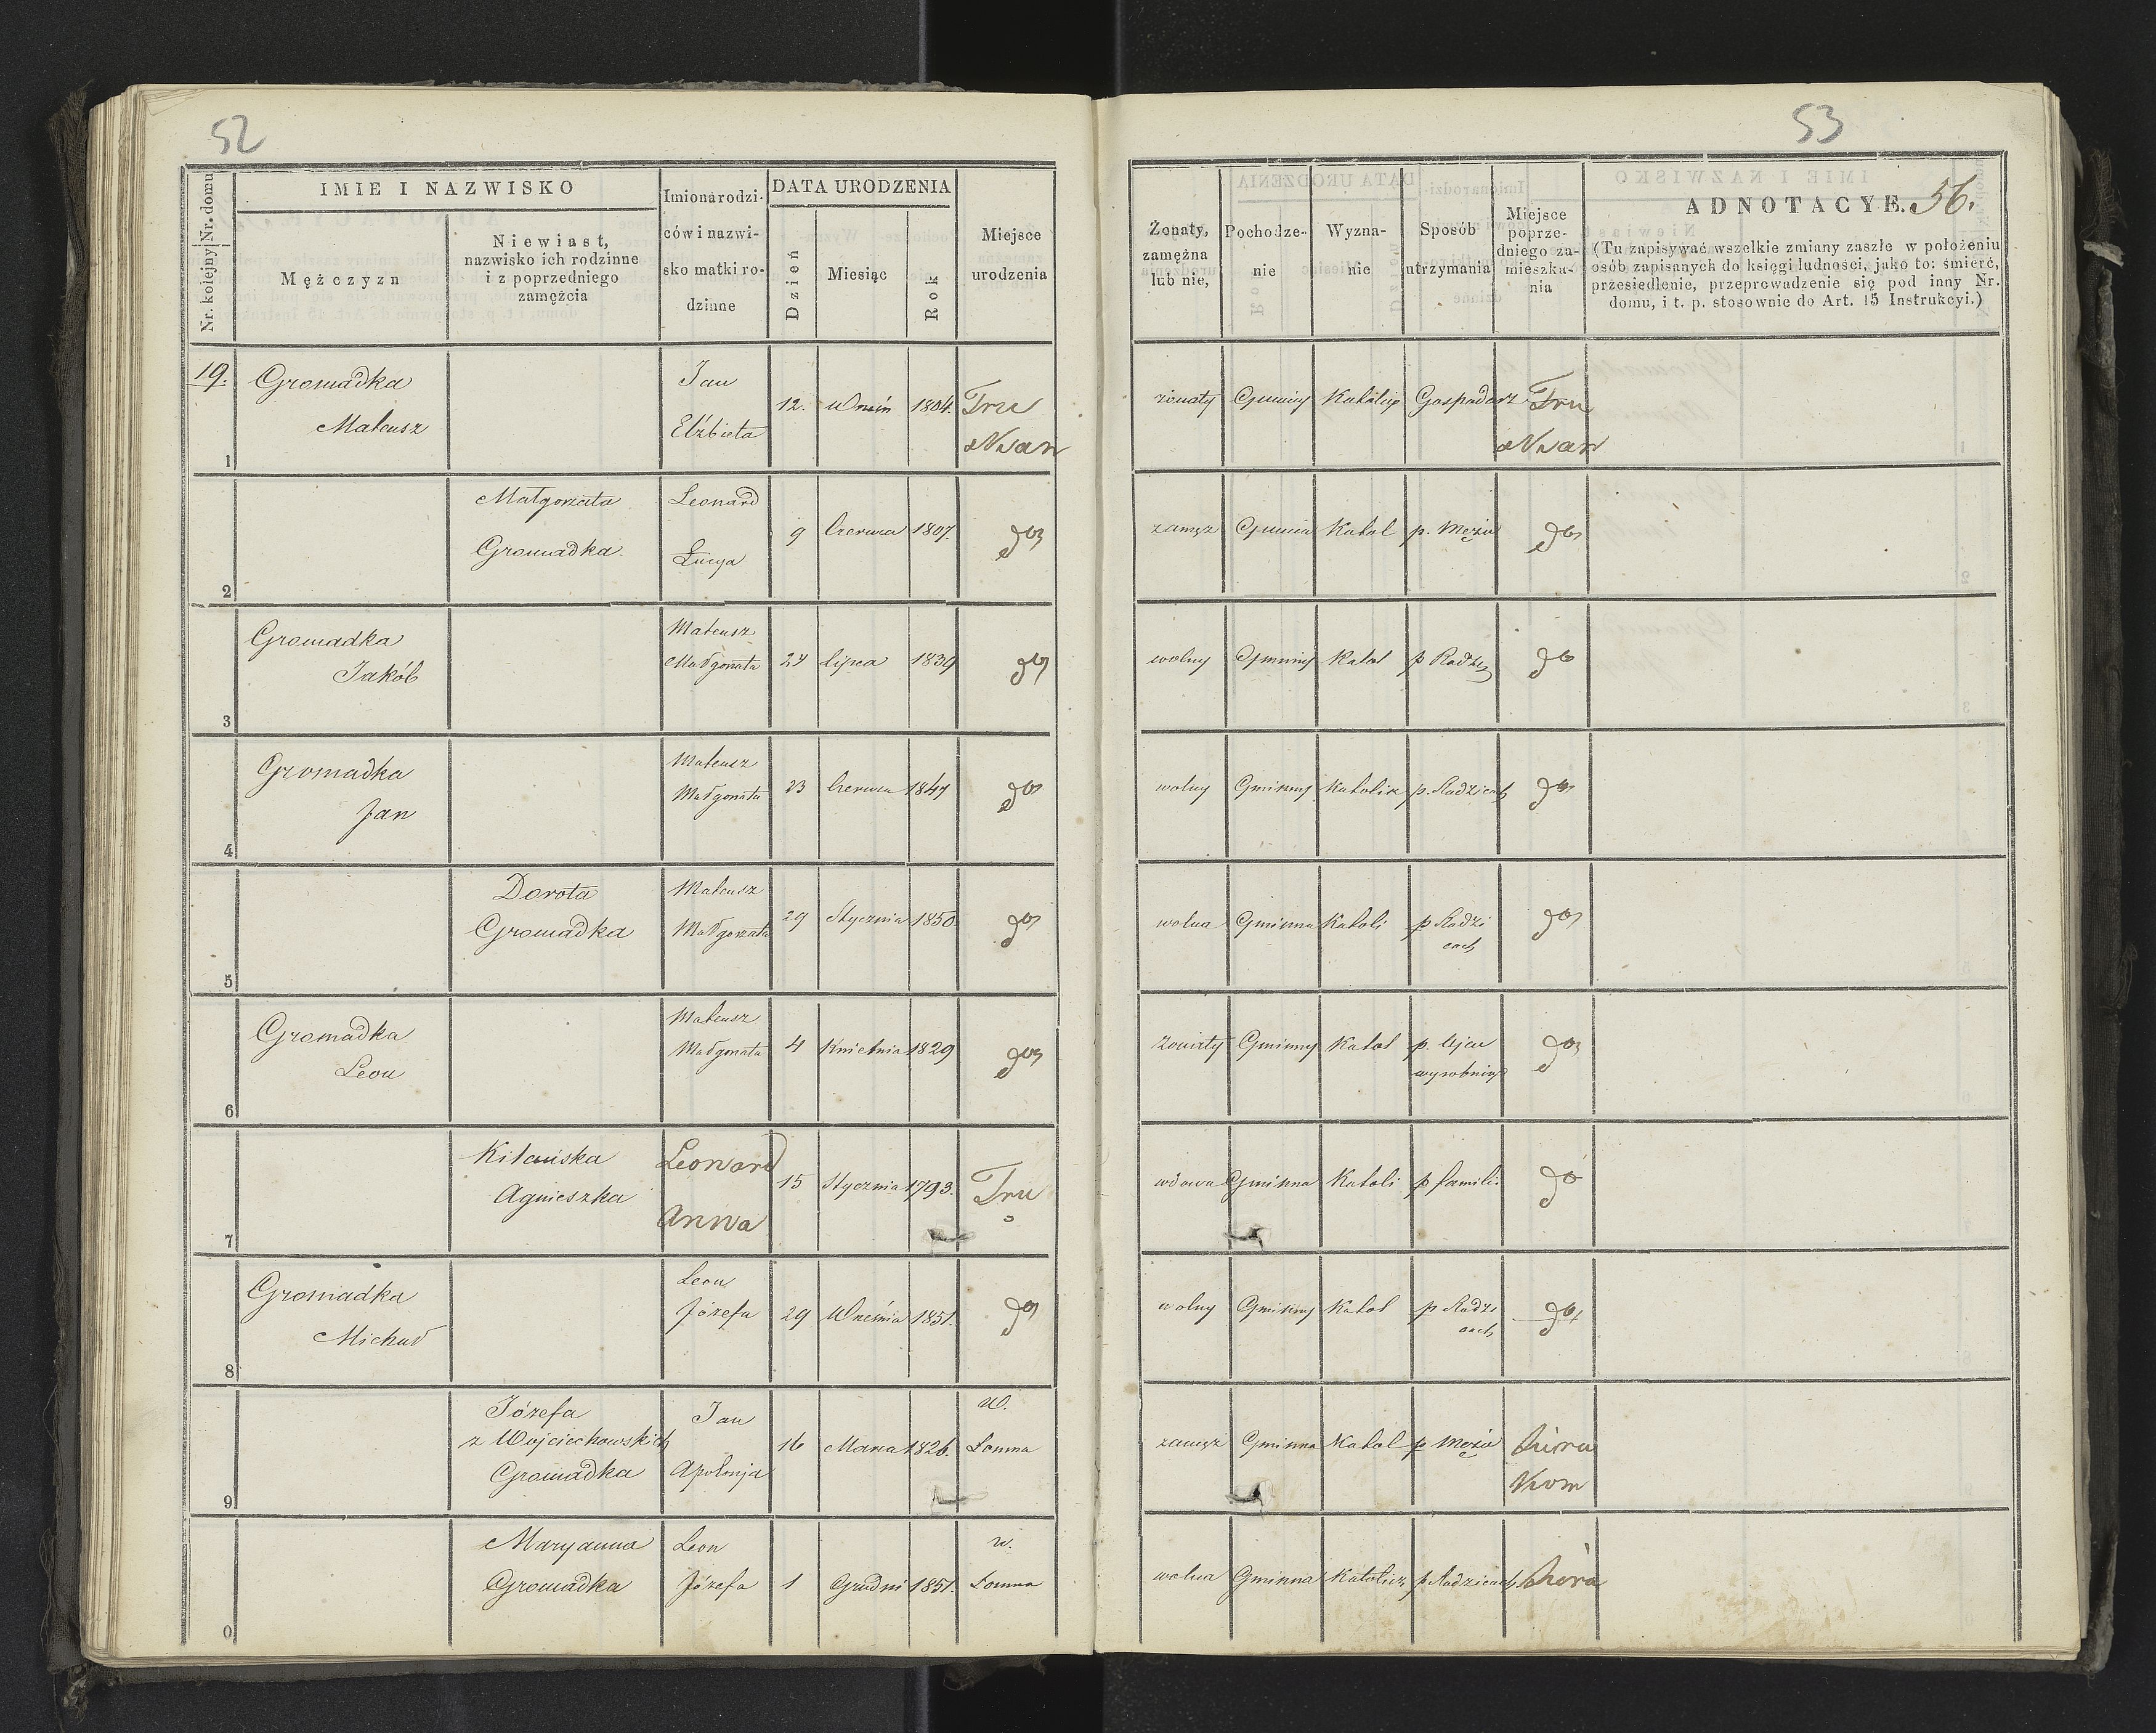 52
Nr. kolejny Nr. domu
IMIE I NAZWISKO
Mężczyzn
Niewiast,
nazwisko ich rodzinne
i z poprzedniego
zamęźcia
Imiona rodzi-
ców i nazwi-
sko matki ro-
dzinne
DATA URODZENIA
Dzień
Miesiąc
Rok
Miejsce
urodzenia
19.
1
Gromadka
Mateusz
Jan
Elżbieta
12.
1804.
2
Małgorzata
Gromadka
Leonard
Łucya
9
Czerwca
1807.
do
3
Gromadka
Jakób
Mateusz
Małgorzata
Lipca
1839
do
4
Gromadka
Jan
Mateusz
Małgorzata
23
Czerwca
1847
do
5
Dorota
Gromadka
Mateusz
Małgorzata
29
Stycznia
1850.
do
6
Gromadka
Leon
Mateusz
Małgorzata
4
Kwietnia
1829
do
7
Agnieszka
Leonard
Anna
15
Stycznia
1793.
8
Gromadka
Michał
Leon
Józefa
29
Września
1851.
do
9
Józefa
z Wojciechowskich
Gromadka
Jan
Apolonja
16
Marca
1826.
w.
Łomna
0
Maryanna
Gromadka
Leon
Józefa
1
Grudni
1851.
w.
Łomna
53
56.
Żonaty,
zamęźna
lub nie,
Pochodze-
nie
Wyzna-
nie
Sposób
utrzymania
Miejsce
poprze-
dniego za-
mieszka-
nia
ADNOTACYE.
(Tu zapisywać wszelkie zmiany zaszłe w położeniu
osób zapisanych do księgi ludności, jako to: śmierć,
przesiedlenie, przeprowadzenie się pod inny Nr.
domu, i t. p. stosownie do Art. 15 Instrukcyi.)
żonaty
Gminny
Gospodarz
zamęż
Gminna
Katol
p. Mężu
do
wolny
Gminny
Katol
do
wolny
Gminny
Katolik
p. Rodzicach
do
wolna
Gminna
Katoli
p Rodzi
cach
do
Gminny
Katol
p. Ojcu
wyrobnik
do
wdowa
Gminna
Katoli
p famili
do
wolny
Gminny
Katol
p Rodzi
cach
do
zamęż
Gminna
Katol
p Mężu
wolna
Gminna
p Rodzicach